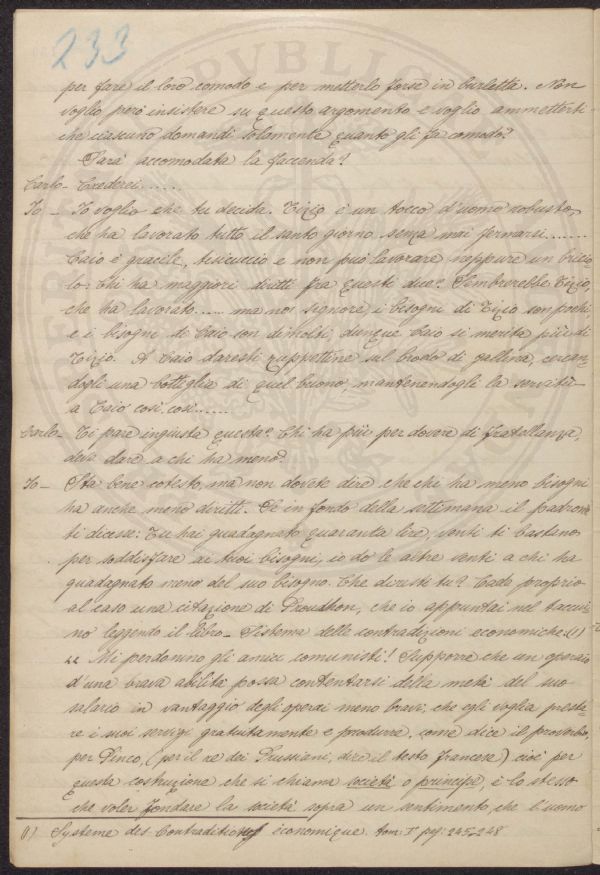 233
per fare il loro comodo e per metterlo forse in burletta. Non
voglio però insistere su questo argomento e voglio ammetterti
che ciascuno domandi solamente quanto gli fa comodo?
Sarà accomodata la faccenda?
Carlo - Crederei......
Io - Io voglio che tu decida. Tizio è un tocco d'uomo robusto,
che ha lavorato tutto il santo giorno senza mai fermarsi.......
Caio è gracile, tisicuccio e non può lavorare neppure un bricio
lo: Chi ha maggiori diritti fra questi due? Sembrerebbe Tizio,
che ha lavorato...... ma no: signore i bisogni di Tizio son pochi,
e i bisogni di Caio son dimolti, dunque Caio si merita più di
Tizio. A Caio daresti zuppettine sul brodo di gallina, cercan
dogli una bottiglia di quel buono, mantenendogli la servitù -
a Caio così, così......
Carlo - Ti pare ingiusta questa? Chi ha più per dovere di fratellanza,
deve dare a chi ha meno?
Io - Sta bene cotesto, ma non dovete dire che chi ha meno bisogni
ha anche meno diritti. Se in fondo della settimana il padrone
ti dicesse: Tu hai guadagnato quaranta lire, venti ti bastano
per soddisfare ai tuoi bisogni, io do le altre venti a chi ha
guadagnato meno del suo bisogno. Che diresti tu? Cade proprio
al caso una citazione di Proudhon, che io appuntai nel taccui
no leggendo il libro - Sistema delle contradizioni economiche. (1)
"Mi perdonino gli amici comunisti! Supporre che un operaio
d'una brava abilità possa contentarsi della metà del suo
salario in vantaggio degli operai meno bravi, che egli voglia presta-
re i suoi servigi gratuitamente e produrre, come dice il proverbio,
per Pinco, (per il re dei Prussiani, dice il testo francese) cioè per
questa costruzione che si chiama società o principe, è lo stesso
che voler fondare la società sopra un sentimento, che l'uomo
(1) Systeme des Contradictions économique. tom. I° pag: 245-248